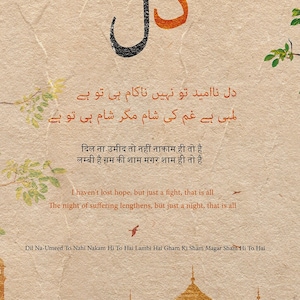 دل
دل ناامید تو نہیں ناکام ہی تو ہے
لمبی ہے غم کی شام مگر شام ہی تو ہے
दिल ना उमीद तो नहीं नाकाम ही तो है
लम्बी है ग़म की शाम मगर शाम ही तो है
I haven't lost hope, but just a fight, that is all
The night of suffering lengthens, but just a night, that is all
Dil Na-Umeed To Nahi Nakam Hi To Hai Lambi Hai Gham Ki Sham Magar Sham Hi To Hai